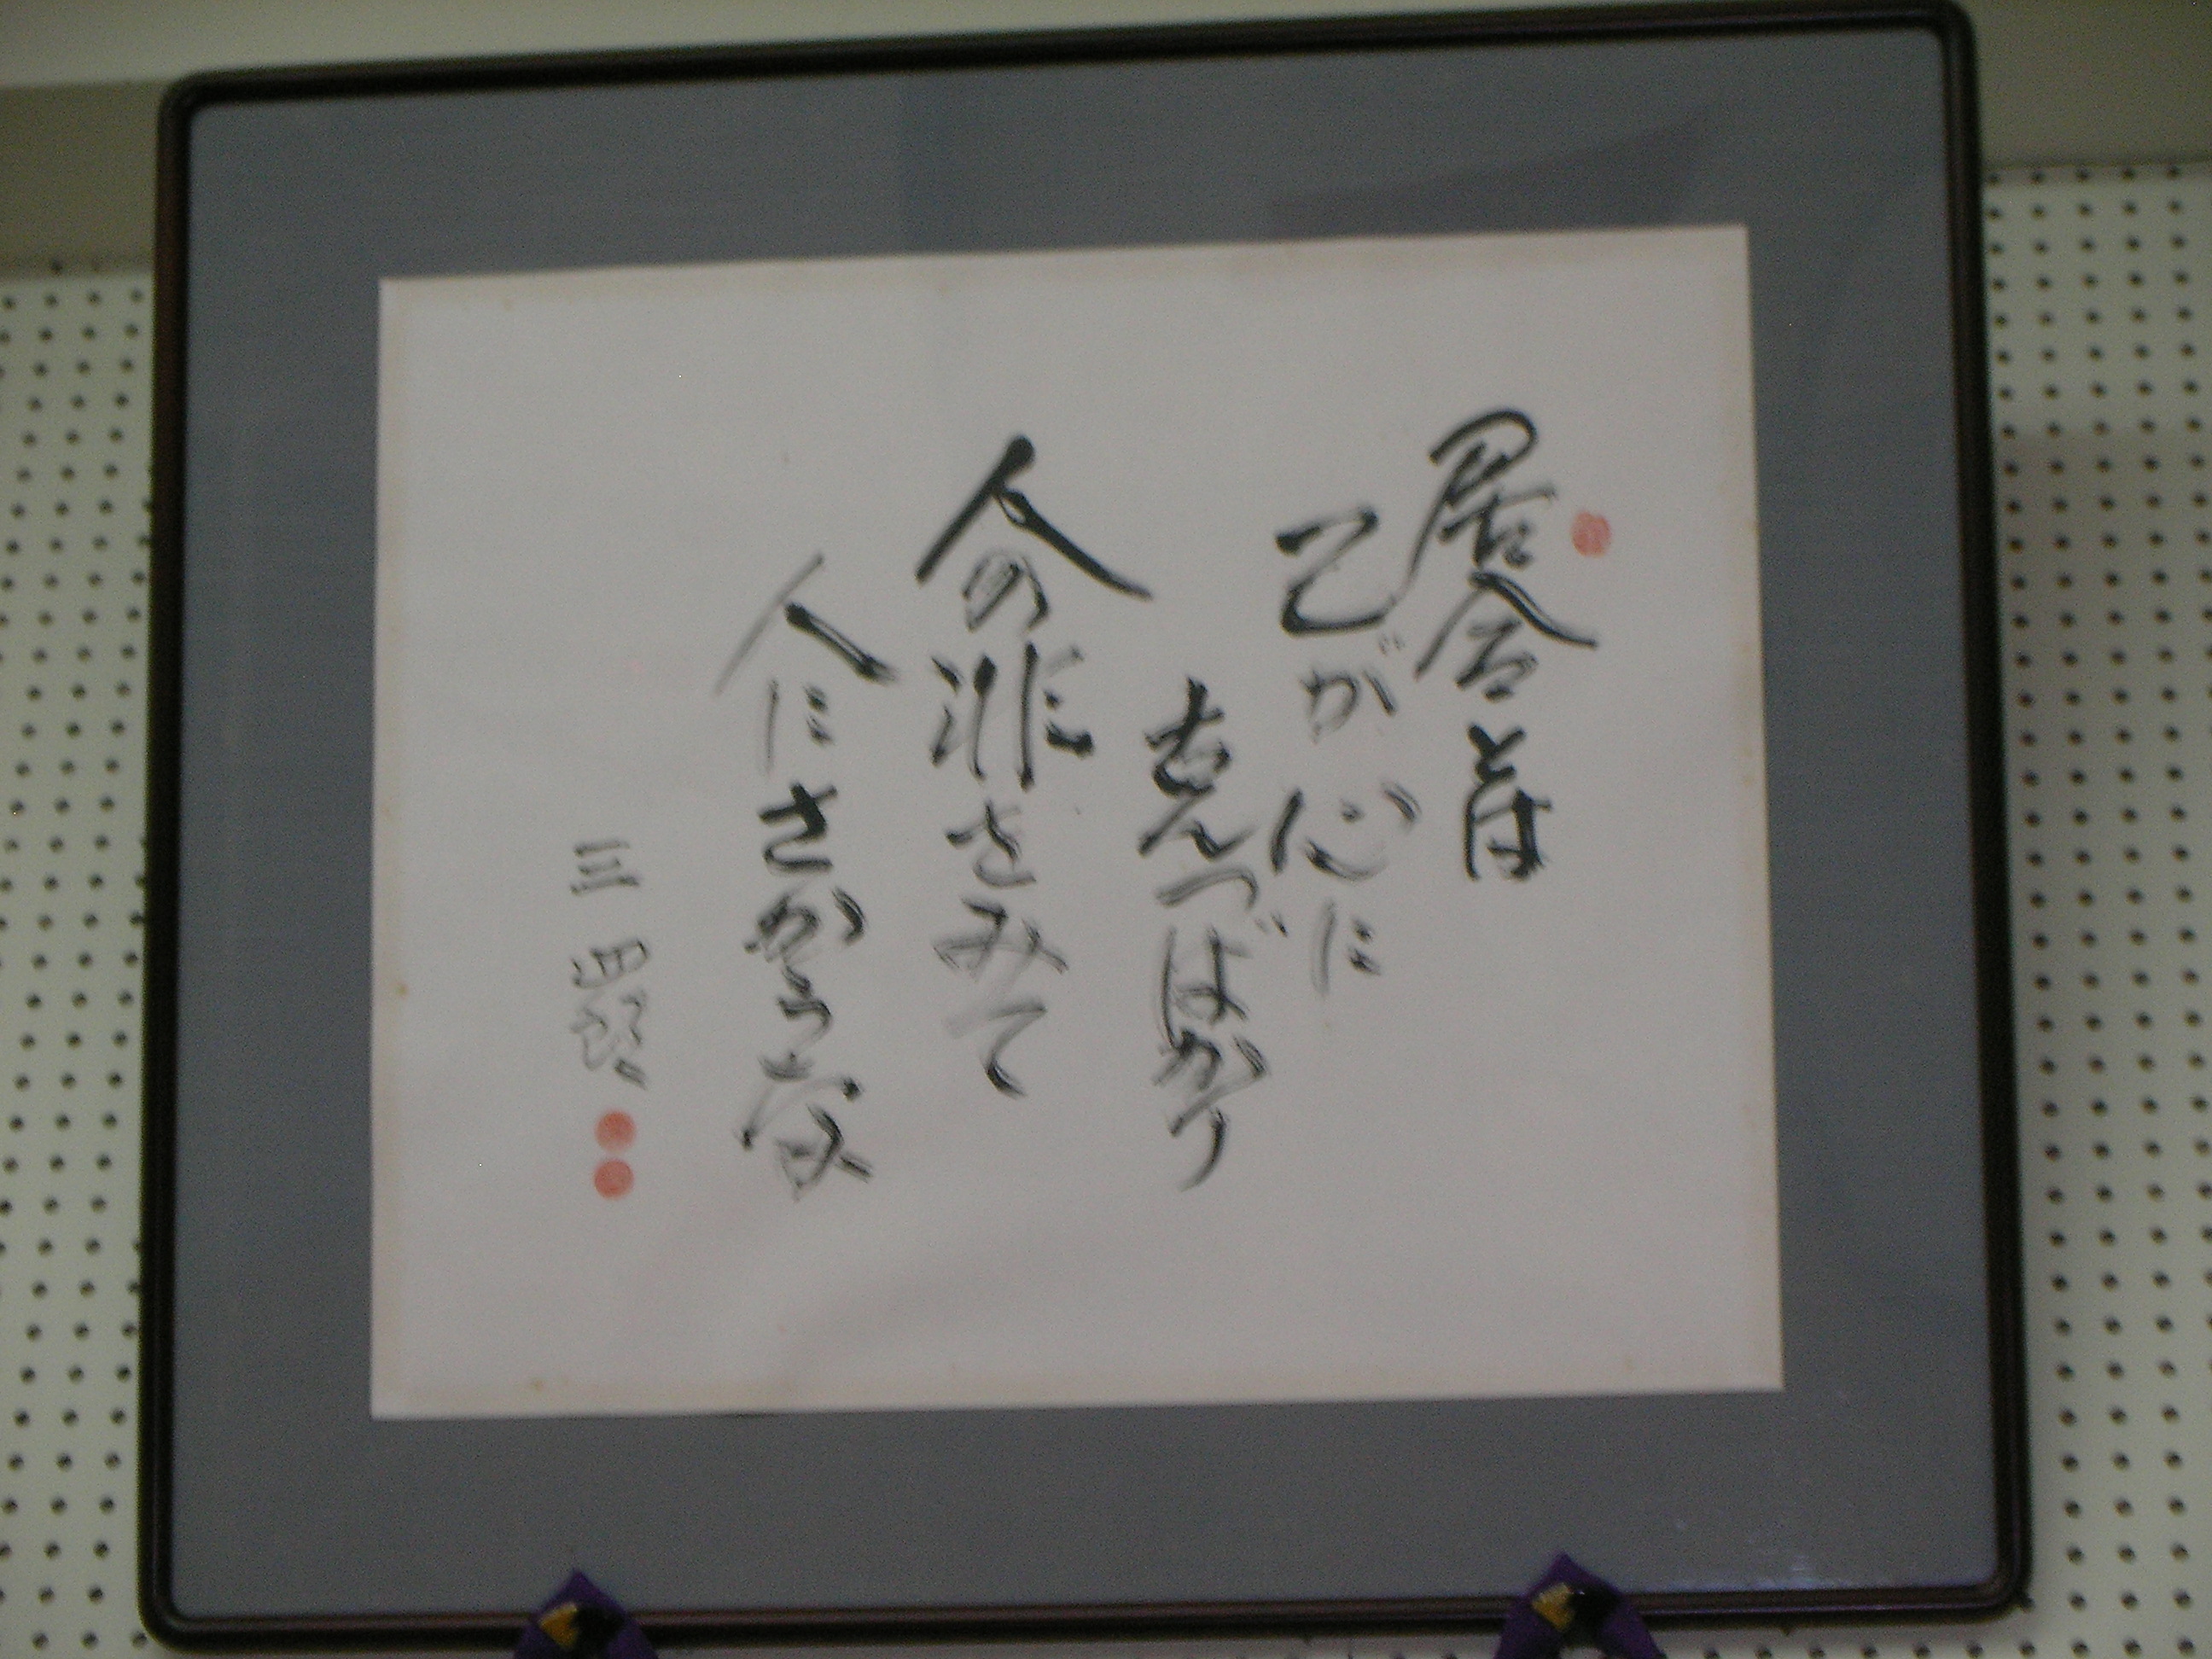 居合とは
己が心に
あんづばかり
人の非をみて
人にさかうな
三四郎